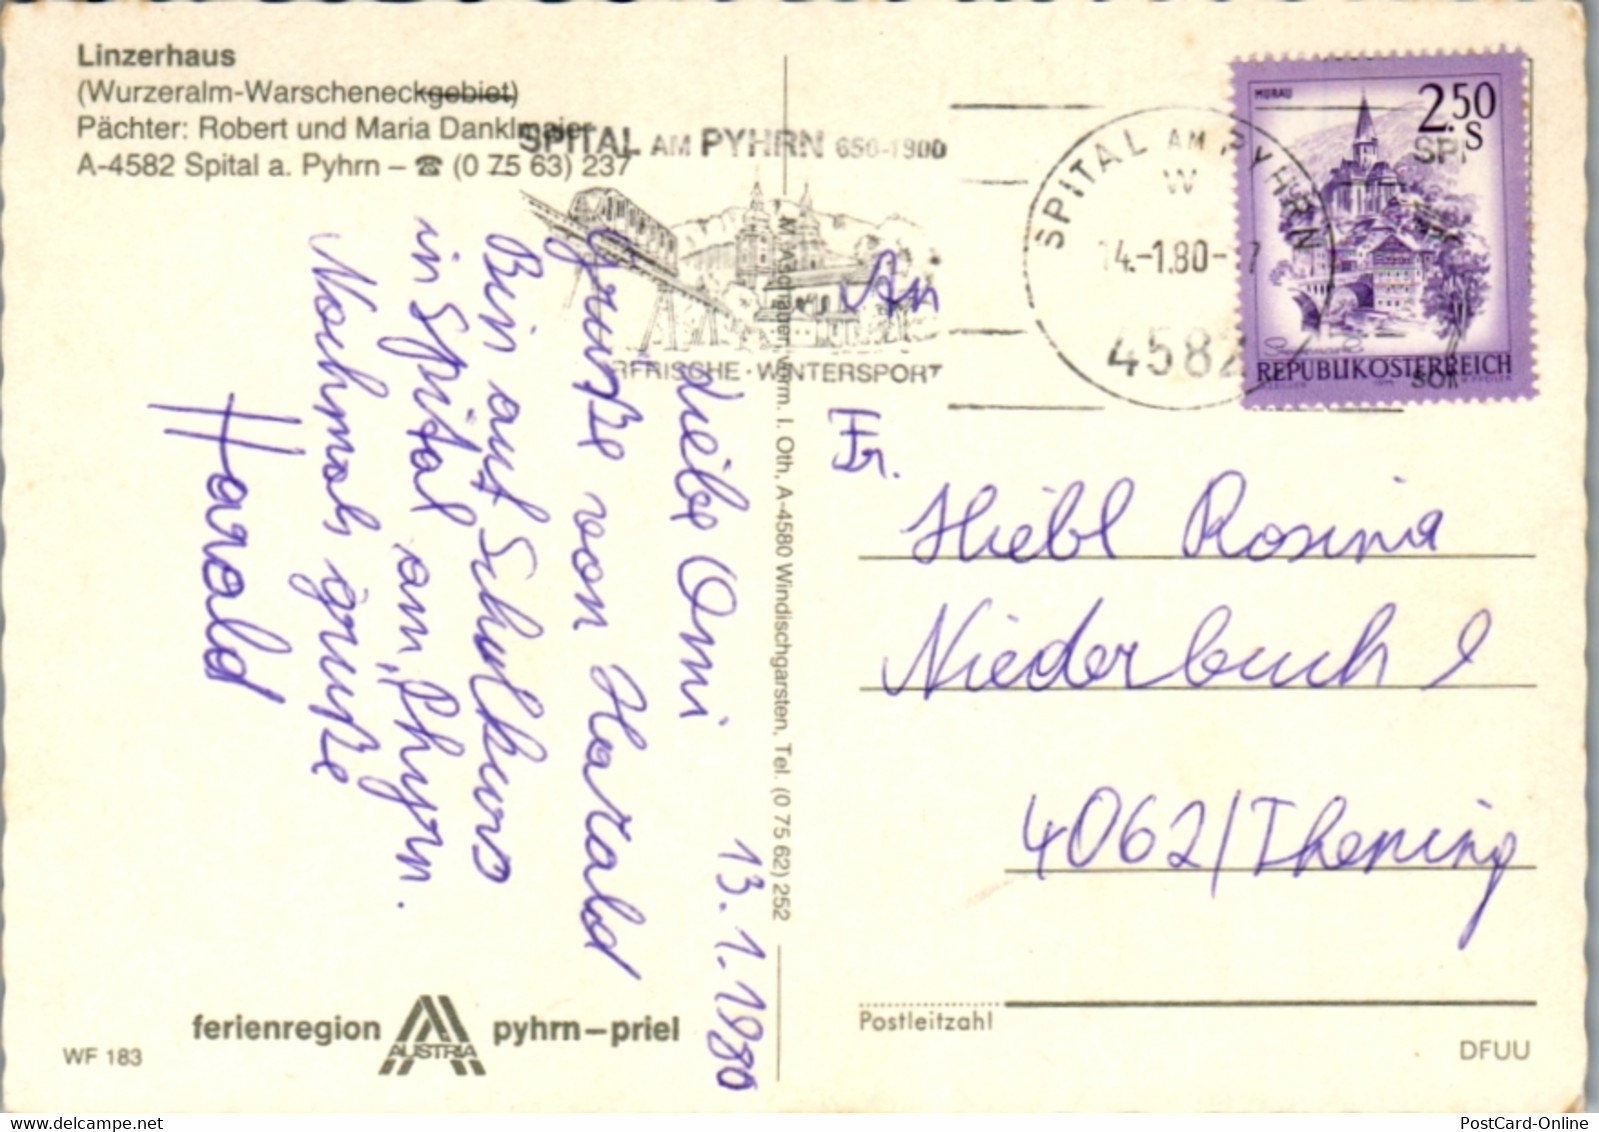 Linzerhaus
(Wurzeralm-Warscheneckgebiet)
Pächter: Robert und Maria Danklmaier
A-4582 Spital a. Pyhrn – ☎ (0 75 63) 237
SPITAL AM PYHRN 650-1900
RFRISCHE · WINTERSPORT
SPITAL AM PYHRN
W
14.-1.80-7
4582
MURAU
2.50
S
REPUBLIK ÖSTERREICH
13.1.1980
Liebe Omi
Grüße von Harald
Bin auf Schulkurs
in Spital am Phyrn.
Nochmals grüße
Harald
I. Oth, A-4580 Windischgarsten, Tel. (0 75 62) 252
An
Fr.
Hiebl Rosina
Niederbuch
4062/Thening
Postleitzahl
ferienregion AUSTRIA pyhrn–priel
WF 183
DFUU
PostCard-Online